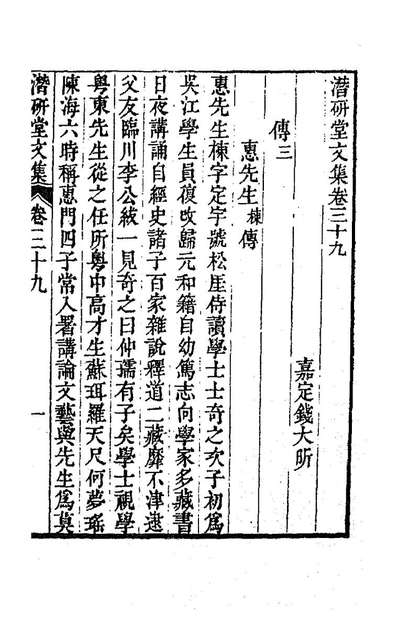 潛研堂文集卷三十九
嘉定錢大昕
傳三
惠先生棟傳
惠先生棟字定宇號松厓侍讀學士士奇之次子初爲
吳江學生員復改歸元和籍自幼篤志向學家多藏書
日夜講誦自經史諸子百家雜說釋道二藏靡不津逮
父友臨川李公紱一見奇之曰仲孺有子矣學士視學
粤東先生從之任所粤中高才生蘇珥羅天尺何夢瑤
陳海六時稱惠門四子常入署講論文藝與先生爲莫
潛研堂文集
卷三十九
一